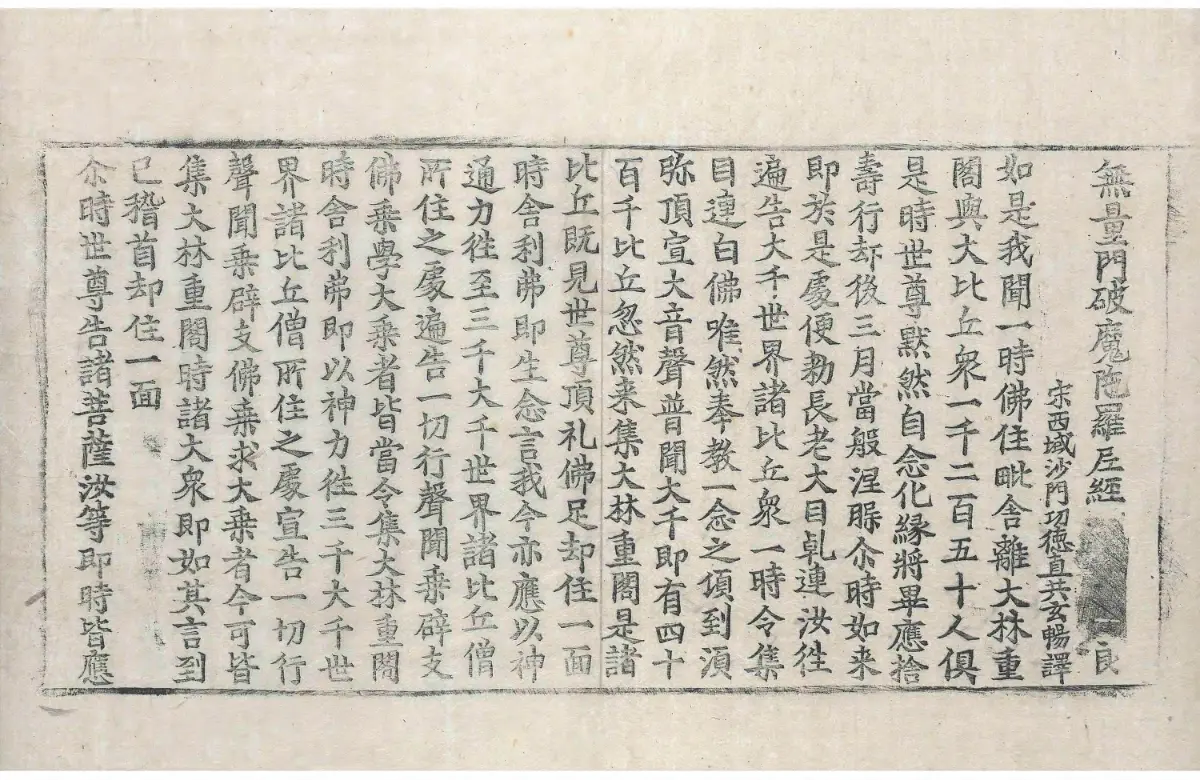 無量門破魔陁羅尼經 良
宋西域沙門功德直共玄暢譯
如是我聞一時佛住毗舍離大林重
閣與大比丘衆一千二百五十人俱
是時世尊默然自念化緣將畢應捨
壽行却後三月當般涅槃尒時如来
即於是處便勑長老大目乹連汝徃
遍告大千世界諸比丘衆一時令集
目連白佛唯然奉教一念之頃到湏
弥頂宣大音聲普聞大千即有四十
百千比丘忽然来集大林重閣是諸
比丘既見世尊頂礼佛足却住一面
時舍利弗即生念言我今亦應以神
通力徃至三千大千世界諸比丘僧
所住之處遍告一切行聲聞乗辟支
佛乗學大乗者皆當令集大林重閣
時舍利弗即以神力徃三千大千世
界諸比丘僧所住之處宣告一切行
聲聞乗辟支佛乗求大乗者今可皆
集大林重閣時諸大衆即如其言到
已稽首却住一面
尒時世尊告諸菩薩汝等即時皆應